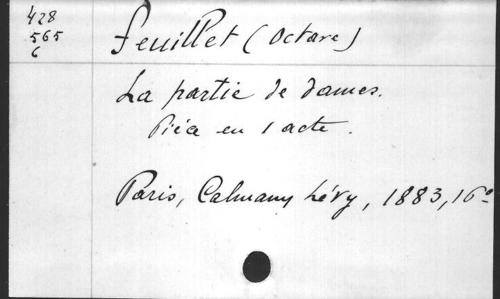 428
565
6
Feuillet (Octave)
La partie de dames.
Pièce en 1 acte.
Paris, Calmann Lévy, 1883, 16º